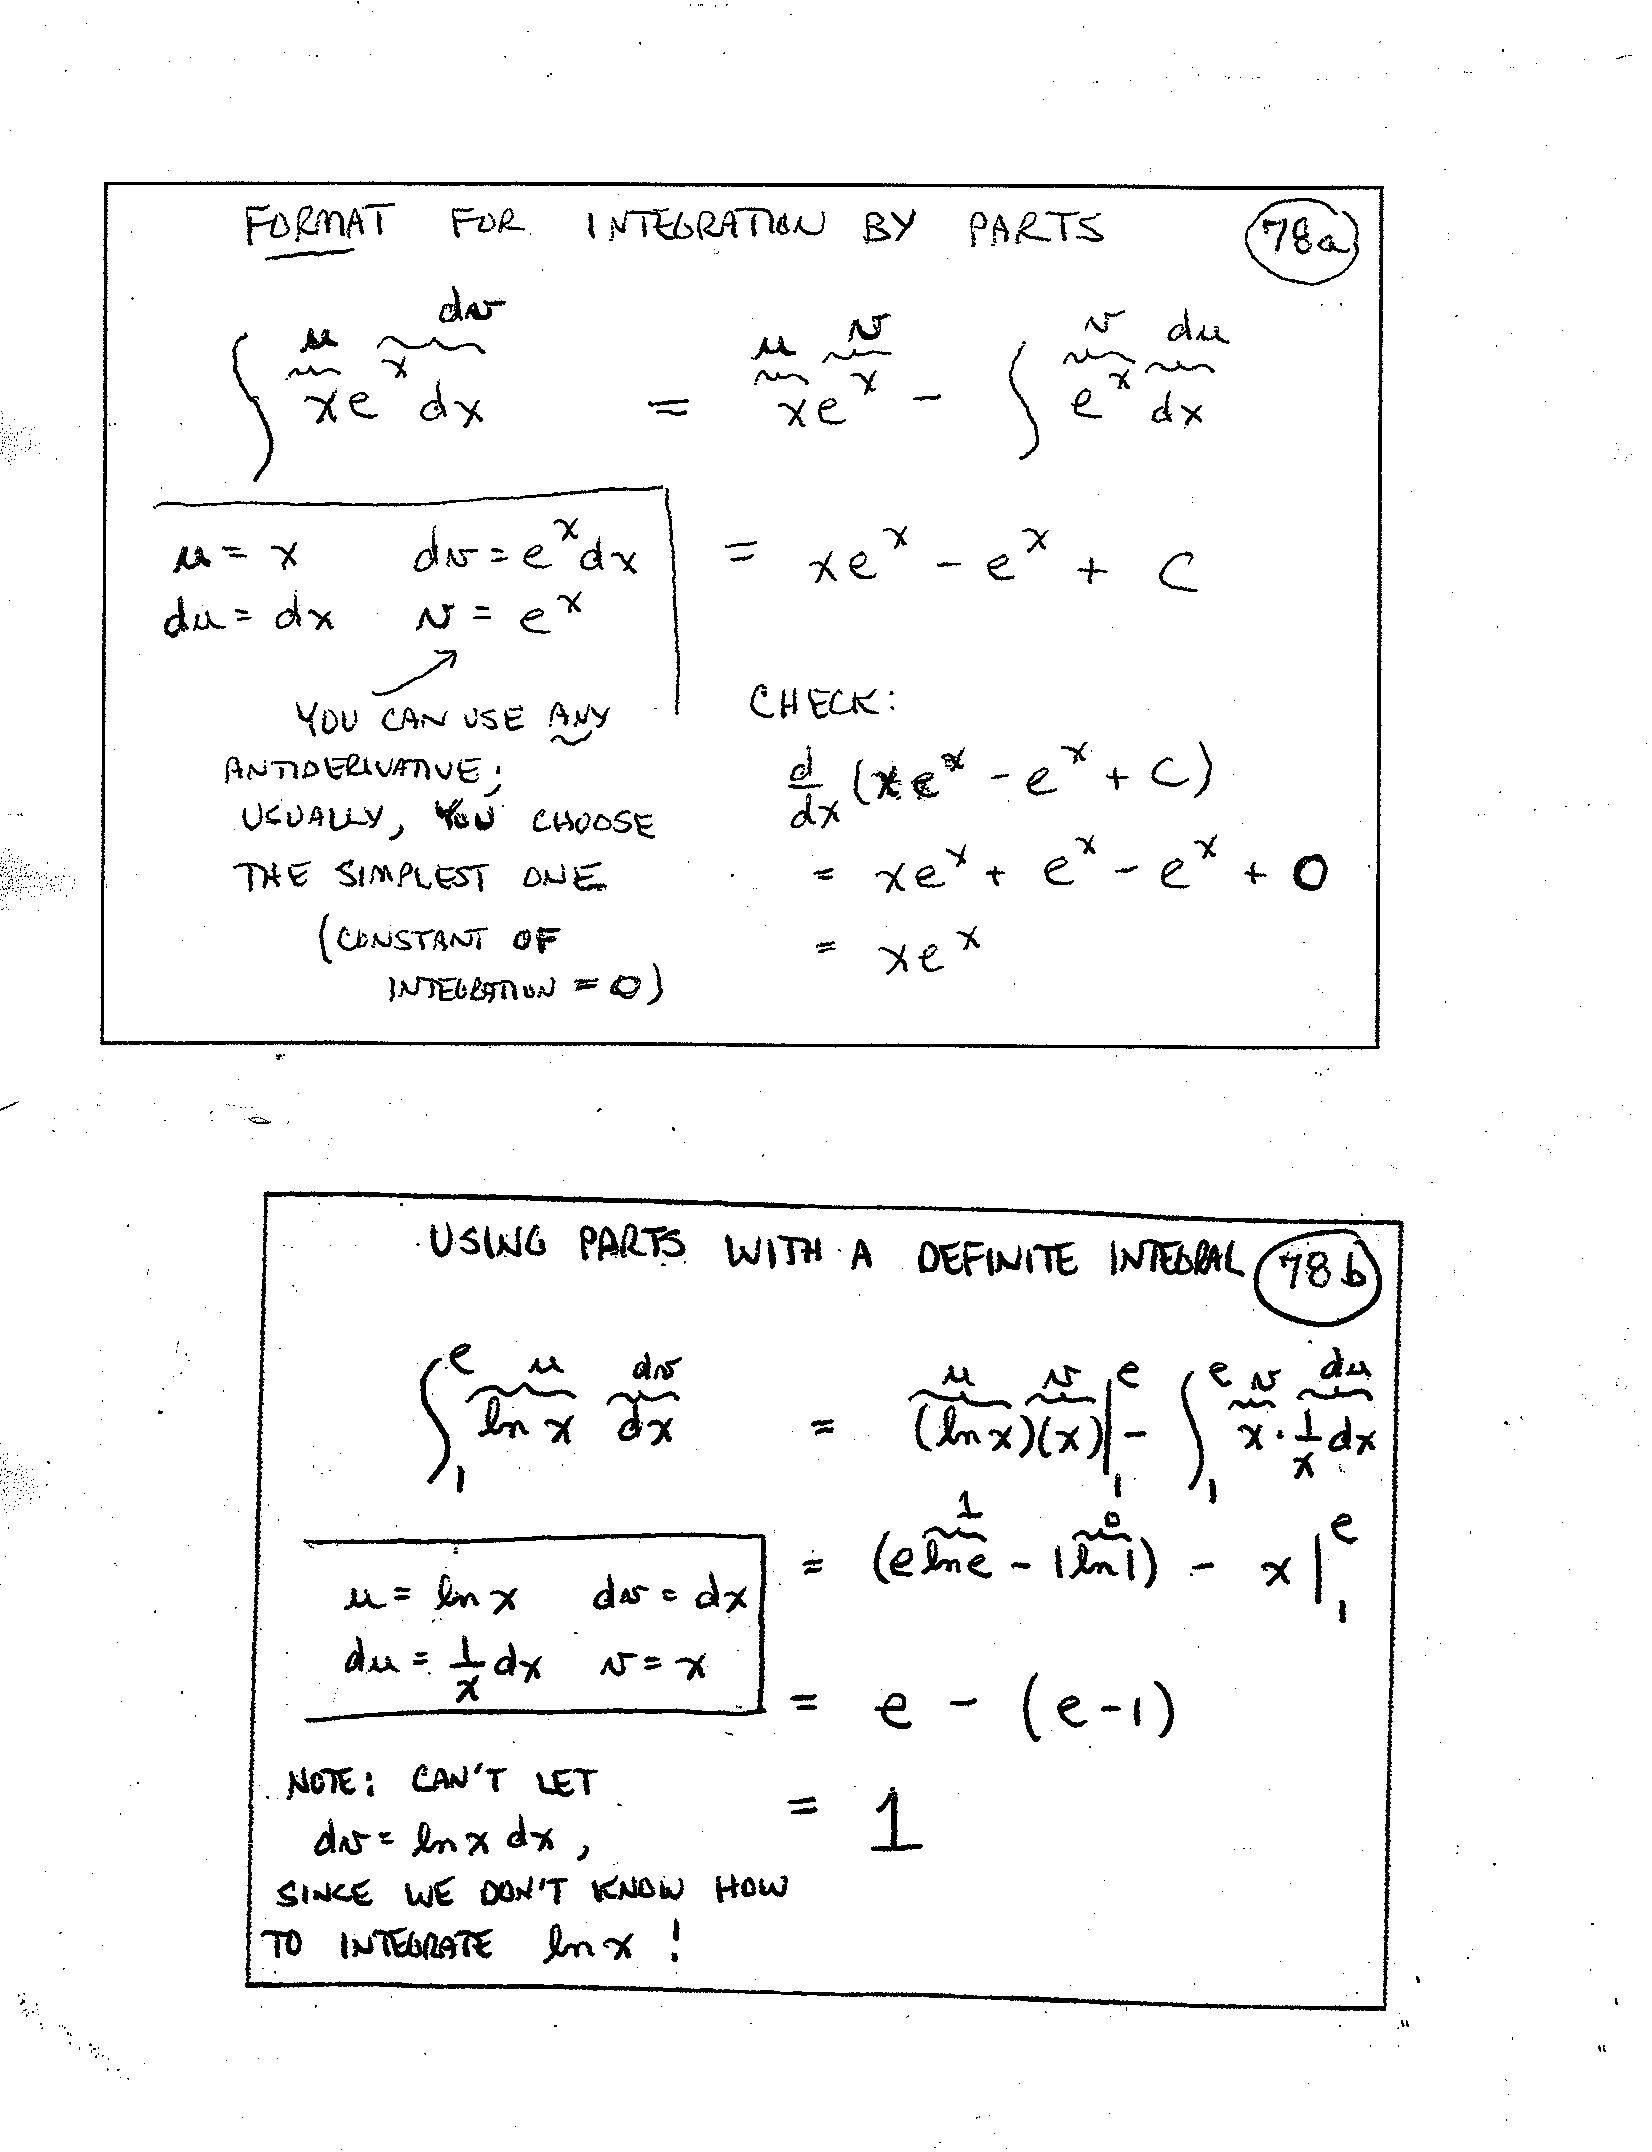 FORMAT FOR INTEGRATION BY PARTS 78a
∫ x e^x dx = x e^x - ∫ e^x dx
u dv u v v du
u = x dv = e^x dx = xe^x - e^x + C
du = dx v = e^x
YOU CAN USE ANY
ANTIDERIVATIVE;
USUALLY, YOU CHOOSE
THE SIMPLEST ONE
(CONSTANT OF
INTEGRATION = 0)
CHECK:
d/dx (xe^x - e^x + C)
= xe^x + e^x - e^x + 0
= xe^x
USING PARTS WITH A DEFINITE INTEGRAL 78b
u dv u v v du
∫_1^e ln x dx = (ln x)(x)|_1^e - ∫_1^e x · 1/x dx
1 0
= (e ln e - 1 ln 1) - x|_1^e
u = ln x dv = dx
du = 1/x dx v = x
= e - (e-1)
= 1
NOTE: CAN'T LET
dv = ln x dx,
SINCE WE DON'T KNOW HOW
TO INTEGRATE ln x !